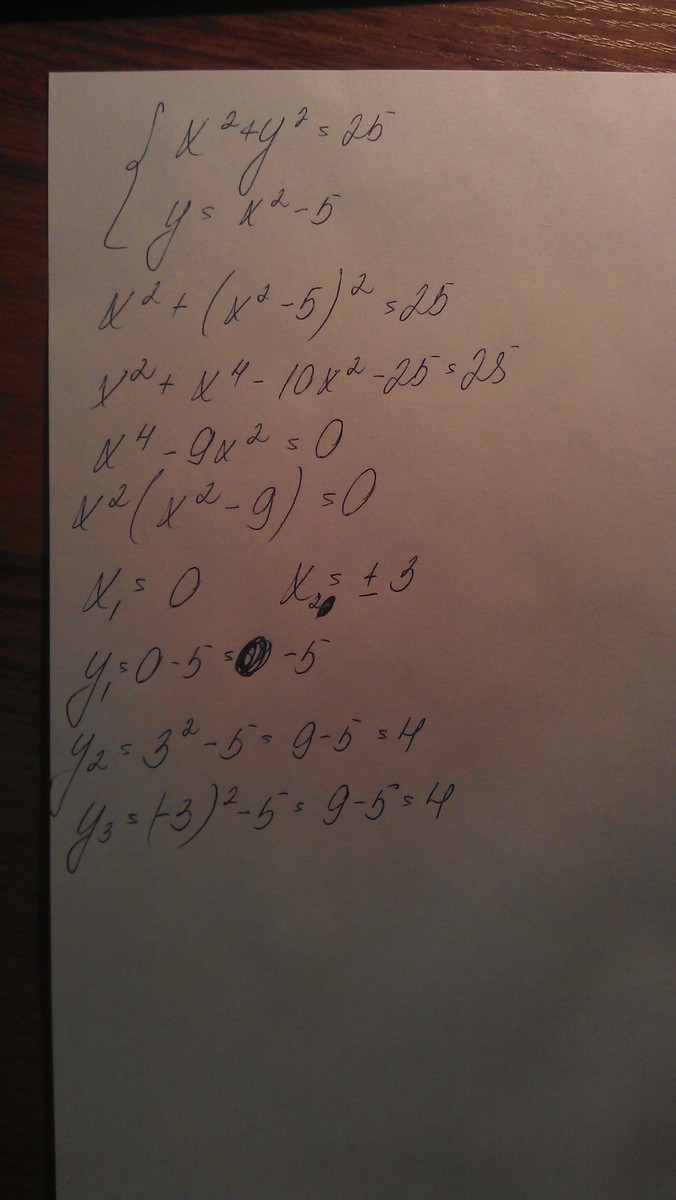 { x² + y² = 25
y = x² - 5
x² + (x² - 5)² = 25
x² + x⁴ - 10x² - 25 = 25
x⁴ - 9x² = 0
x² (x² - 9) = 0
x₁ = 0 x₂ = ± 3
y₁ = 0 - 5 = - 5
y₂ = 3² - 5 = 9 - 5 = 4
y₃ = (-3)² - 5 = 9 - 5 = 4